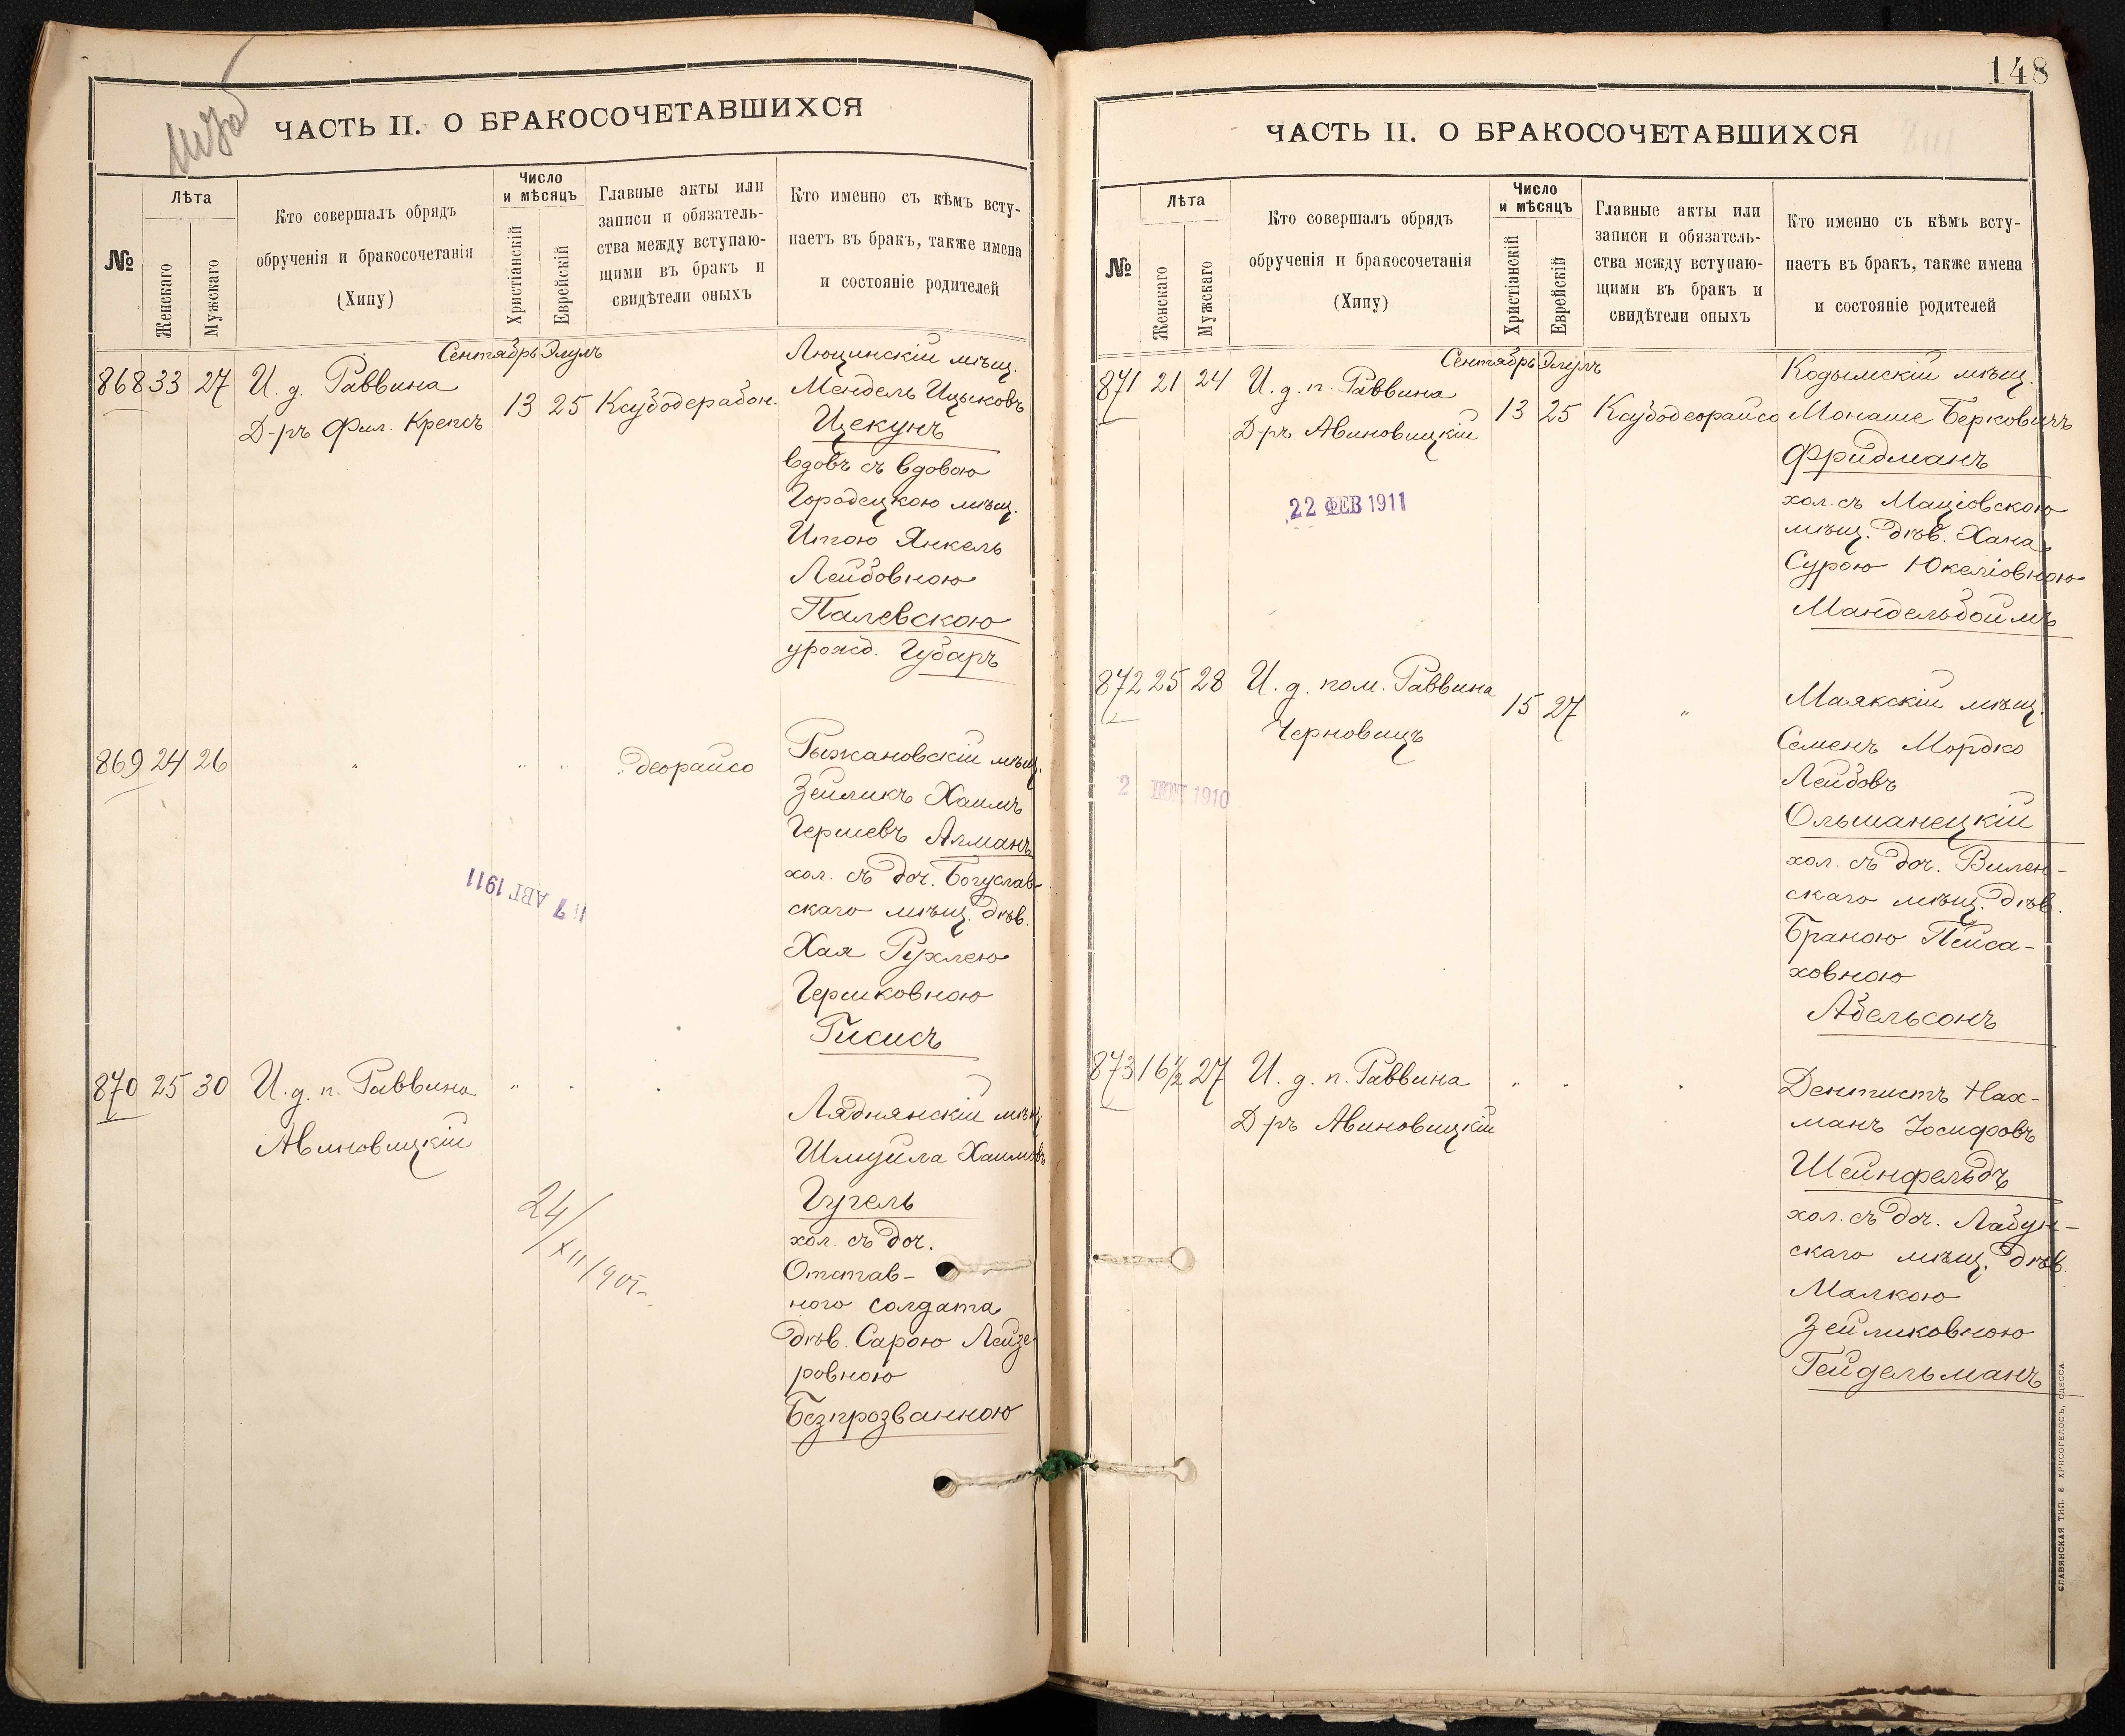 ЧАСТЬ II. О БРАКОСОЧЕТАВШИХСЯ
№
Лѣта
Женскаго
Мужскаго
Кто совершалъ обрядъ
обрученія и бракосочетанія
(Хипу)
Число
и мѣсяцъ
Христіанскій
Еврейскій
Главные акты или
записи и обязатель-
ства между вступаю-
щими въ бракъ и
свидѣтели оныхъ
Кто именно съ кѣмъ всту-
паетъ въ бракъ, также имена
и состояніе родителей
Сентябрь Элулъ
868 33 27 И. д. Раввина
Д-ръ Фил. Крепсъ
13 25 Ксубодерабон.
Люцинскій мѣщ.
Мендель Ицьковъ
Цекунъ
вдовъ съ вдовою
Городецкою мѣщ.
Итою Янкель
Лейбовною
Палевскою
урожд. Губаръ
869 24 26 " " " деорайсо
Рыжановскій мѣщ.
Зейликъ Хаимъ
Гершевъ Алманъ
хол. съ доч. Богуслав-
скаго мѣщ. дѣв.
Хая Рухлею
Гершковною
Гисисъ
17 АВГ 1911
870 25 30 И. д. п. Раввина
Авиновицкій
" "
Ляднянскій мѣщ.
Шмуйла Хаимовъ
Гугель
хол. съ доч.
Отстав-
ного солдата
дѣв. Сарою Лейзе-
ровною
Безпрозванною
24/XII/905
148
ЧАСТЬ II. О БРАКОСОЧЕТАВШИХСЯ
№
Лѣта
Женскаго
Мужскаго
Кто совершалъ обрядъ
обрученія и бракосочетанія
(Хипу)
Число
и мѣсяцъ
Христіанскій
Еврейскій
Главные акты или
записи и обязатель-
ства между вступаю-
щими въ бракъ и
свидѣтели оныхъ
Кто именно съ кѣмъ всту-
паетъ въ бракъ, также имена
и состояніе родителей
Сентябрь Элулъ
871 21 24 И. д. п. Раввина
Д-ръ Авиновицкій
13 25 Ксубодеорайсо
Кодымскій мѣщ.
Монаше Берковичъ
Фридманъ
хол. съ Маціовскою
мѣщ. дѣв. Хана
Сурою Юкеліовною
Мандельбоймъ
22 ФЕВ 1911
872 25 28 И. д. пом. Раввина
Черновицъ
15 27 "
Маякскій мѣщ.
Семенъ Мордко
Лейбовъ
Ольшанецкій
хол. съ доч. Вилен-
скаго мѣщ. дѣв.
Браною Пейса-
ховною
Абельсонъ
2 1910
873 16½ 27 И. д. п. Раввина
Д-ръ Авиновицкій
" "
Дентистъ Нах-
манъ Іосифовъ
Шейнфельдъ
хол. съ доч. Лабун-
скаго мѣщ. дѣв.
Малкою
Зейликовною
Гейдельманъ
СЛАВЯНСКАЯ ТИП. Е. ХРИСОГЕЛОСЪ, ОДЕССА.